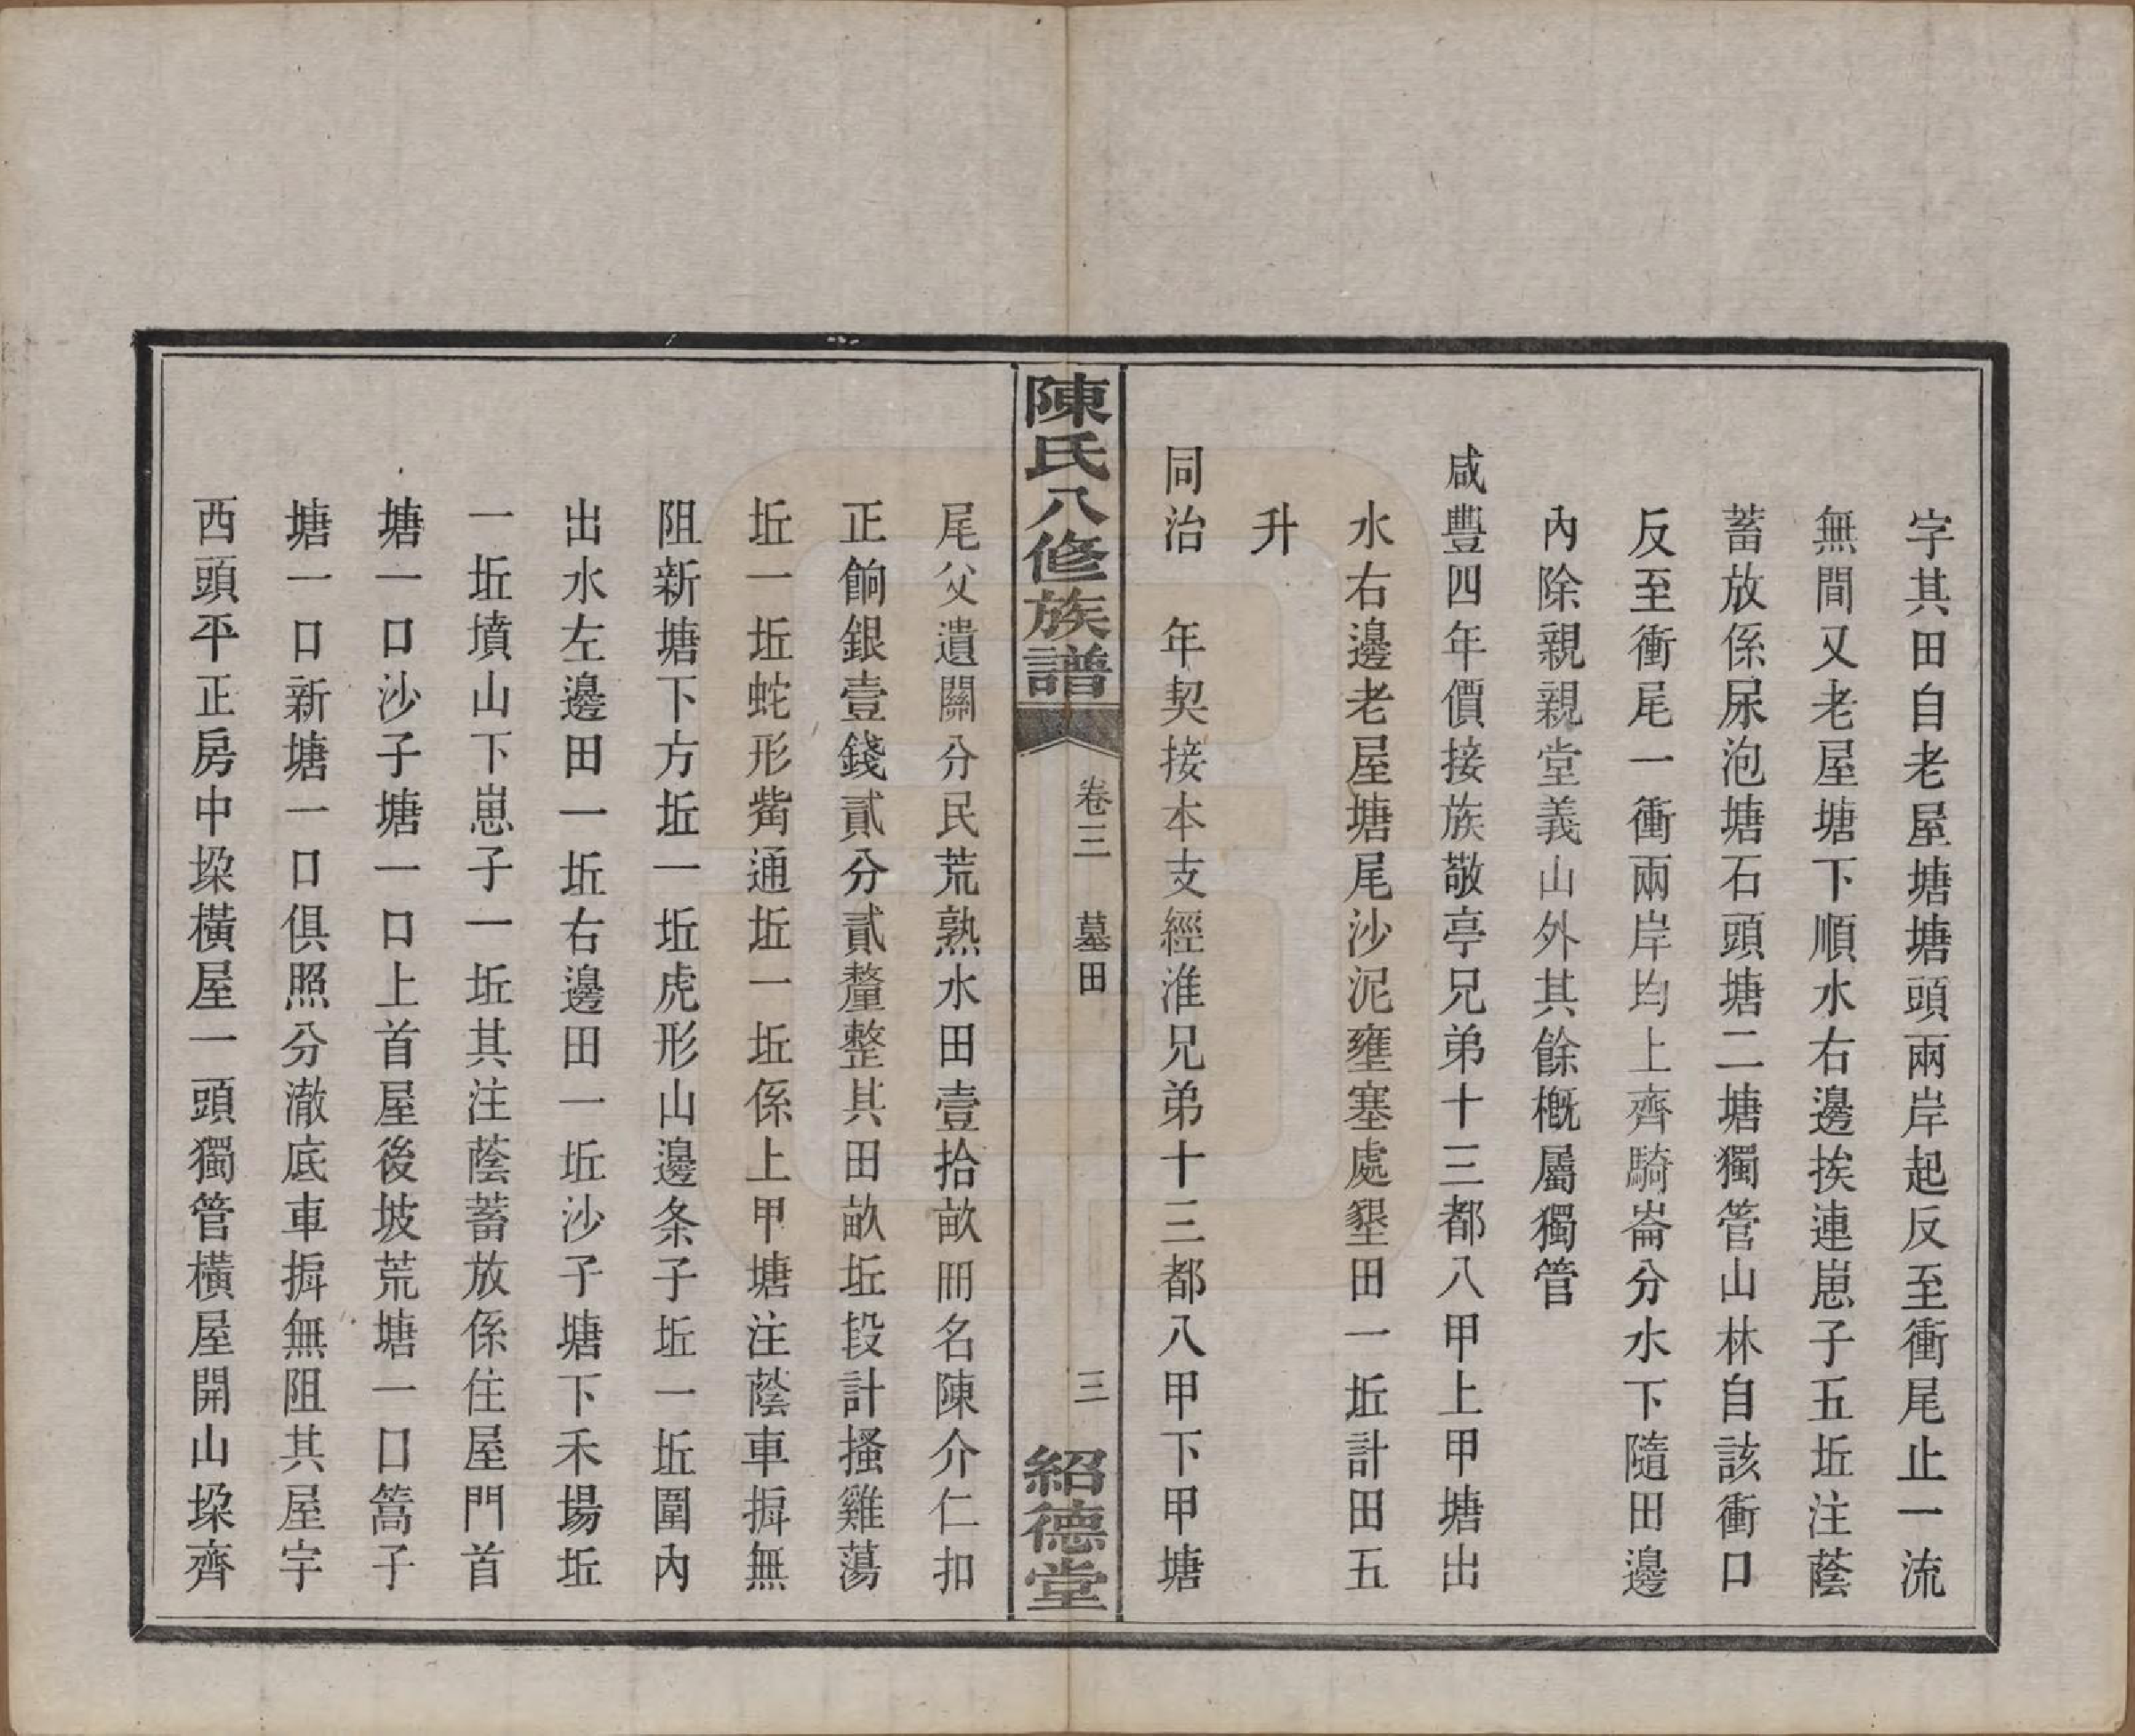 字其田自老屋塘塘頭兩岸起反至衝尾止一流
無間又老屋塘下順水右邊挨連崽子五坵注蔭
蓄放係尿泡塘石頭塘二塘獨管山林自該衝口
反至衝尾一衝兩岸均上齊騎崙分水下隨田邊
內除親親堂義山外其餘概屬獨管
咸豐四年價接族敬亭兄弟十三都八甲上甲塘出
水右邊老屋塘尾沙泥壅塞處墾田一坵計田五
升
同治　年契接本支經淮兄弟十三都八甲下甲塘
陳氏八修族譜
卷三　墓田
三
紹德堂
尾父遺關分民荒熟水田壹拾畝冊名陳介仁扣
正餉銀壹錢貳分貳釐整其田畝坵段計搔雞蕩
坵一坵蛇形觜通坵一坵係上甲塘注蔭車搙無
阻新塘下方坵一坵虎形山邊条子坵一坵圍內
出水左邊田一坵右邊田一坵沙子塘下禾場坵
一坵墳山下崽子一坵其注蔭蓄放係住屋門首
塘一口沙子塘一口上首屋後坡荒塘一口篙子
塘一口新塘一口俱照分澈底車搙無阻其屋宇
西頭平正房中垜橫屋一頭獨管橫屋開山垜齊